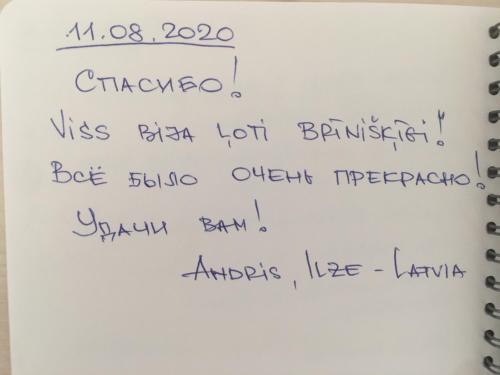 11.08.2020
Спасибо!
Viss bija ļoti brīnišķīgi!
Всё было очень прекрасно!
Удачи вам!
Andris, Ilze - Latvia